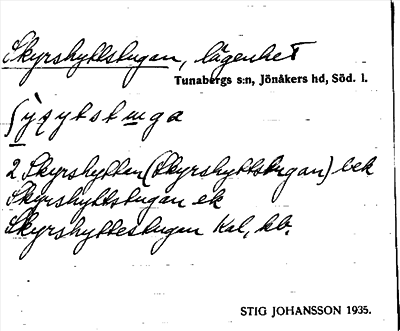 Skyrshyttstugan, lägenhet
Tunabergs s:n, Jönåkers hd, Söd. l.
2 Skyrshyttan (Skyrshyttstugan) bek
Skyrshyttstugan ek
Skyrshyttestugan Kal, kb.
STIG JOHANSSON 1935.